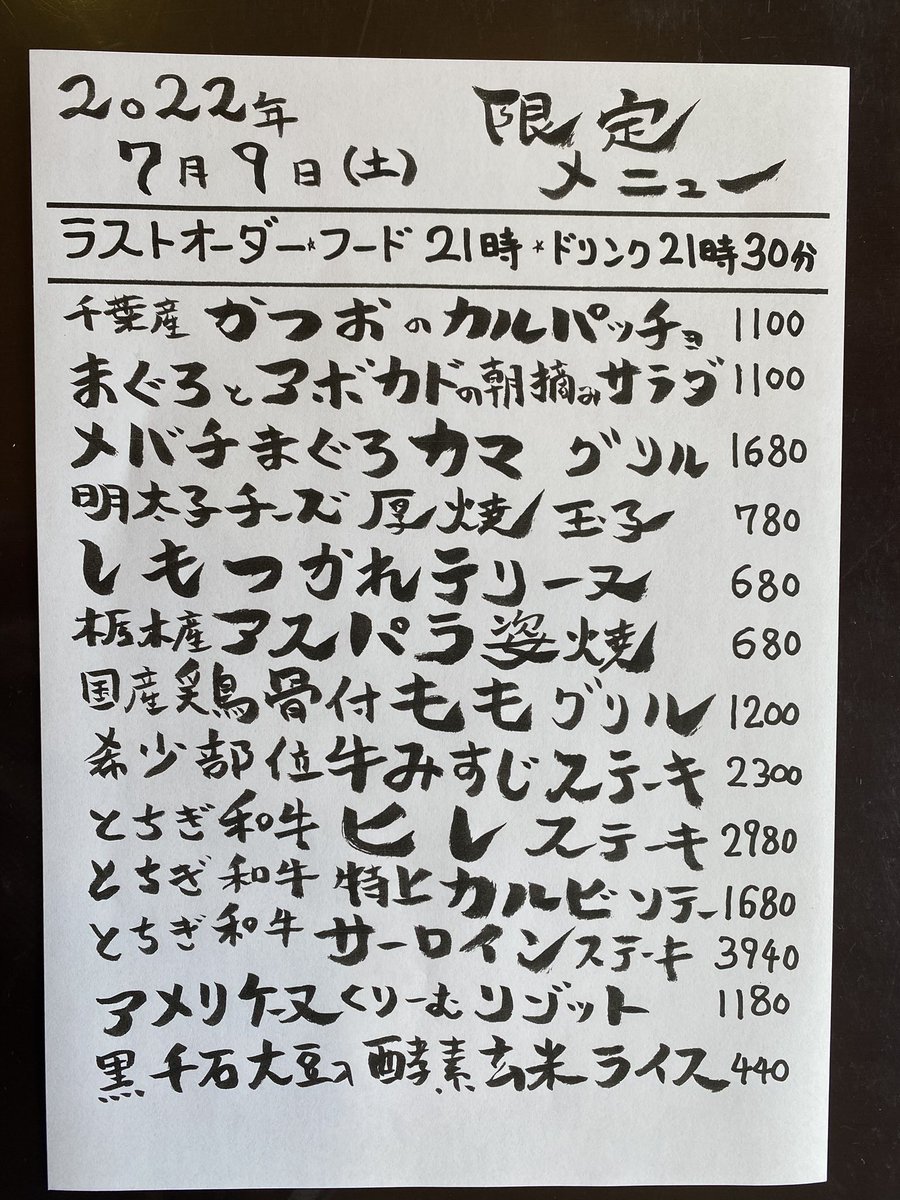 2022年 限定
7月9日(土) メニュー
ラストオーダー*フード21時*ドリンク21時30分
千葉産かつおのカルパッチョ 1100
まぐろとアボカドの朝摘みサラダ 1100
メバチまぐろカマ グリル 1680
明太子チーズ厚焼玉子 780
しもつかれテリーヌ 680
栃木産アスパラ姿焼 680
国産鶏骨付ももグリル 1200
希少部位牛みすじステーキ 2300
とちぎ和牛ヒレステーキ 2980
とちぎ和牛特上カルビソテー 1680
とちぎ和牛サーロインステーキ 3940
アメリケーヌくりーむリゾット 1180
黒千石大豆入酵素玄米ライス 440